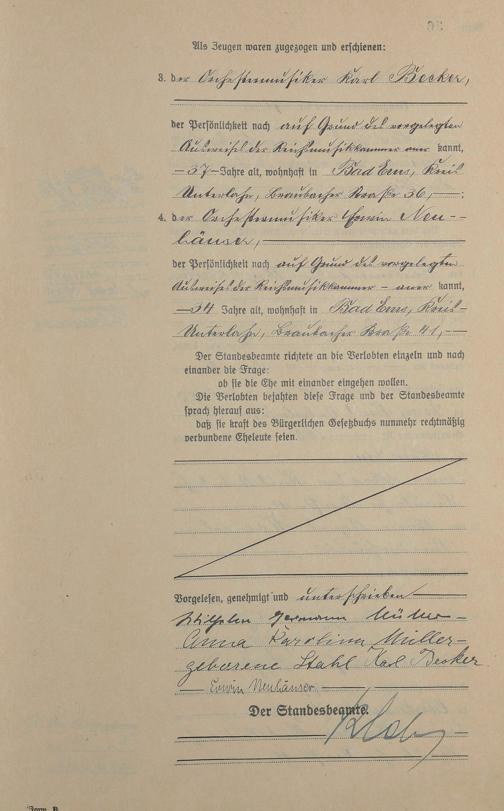 Als Zeugen waren zugezogen und erschienen:
3. der Orchestermusiker Karl Becker,
der Persönlichkeit nach auf Grund des vorgelegten
Ausweises der Reichsmusikkammer aner kannt,
—37— Jahre alt, wohnhaft in Bad Ems, Kreis
Unterlahn, Braubacher Straße 36, —;
4. der Orchestermusiker Erwin Neu-
häuser, —
der Persönlichkeit nach auf Grund des vorgelegten
Ausweises der Reichsmusikkammer - aner kannt,
—34 Jahre alt, wohnhaft in Bad Ems, Kreis-
Unterlahn, Braubacher Straße 41, —
Der Standesbeamte richtete an die Verlobten einzeln und nach
einander die Frage:
ob sie die Ehe mit einander eingehen wollen.
Die Verlobten bejahten diese Frage und der Standesbeamte
sprach hierauf aus:
daß sie kraft des Bürgerlichen Gesetzbuchs nunmehr rechtmäßig
verbundene Eheleute seien.
Vorgelesen, genehmigt und unterschrieben —
Wilhelm Hermann Müller —
Anna Karolina Müller-
geborene Stahl Karl Becker
— Erwin Neuhäuser —
Der Standesbeamte.